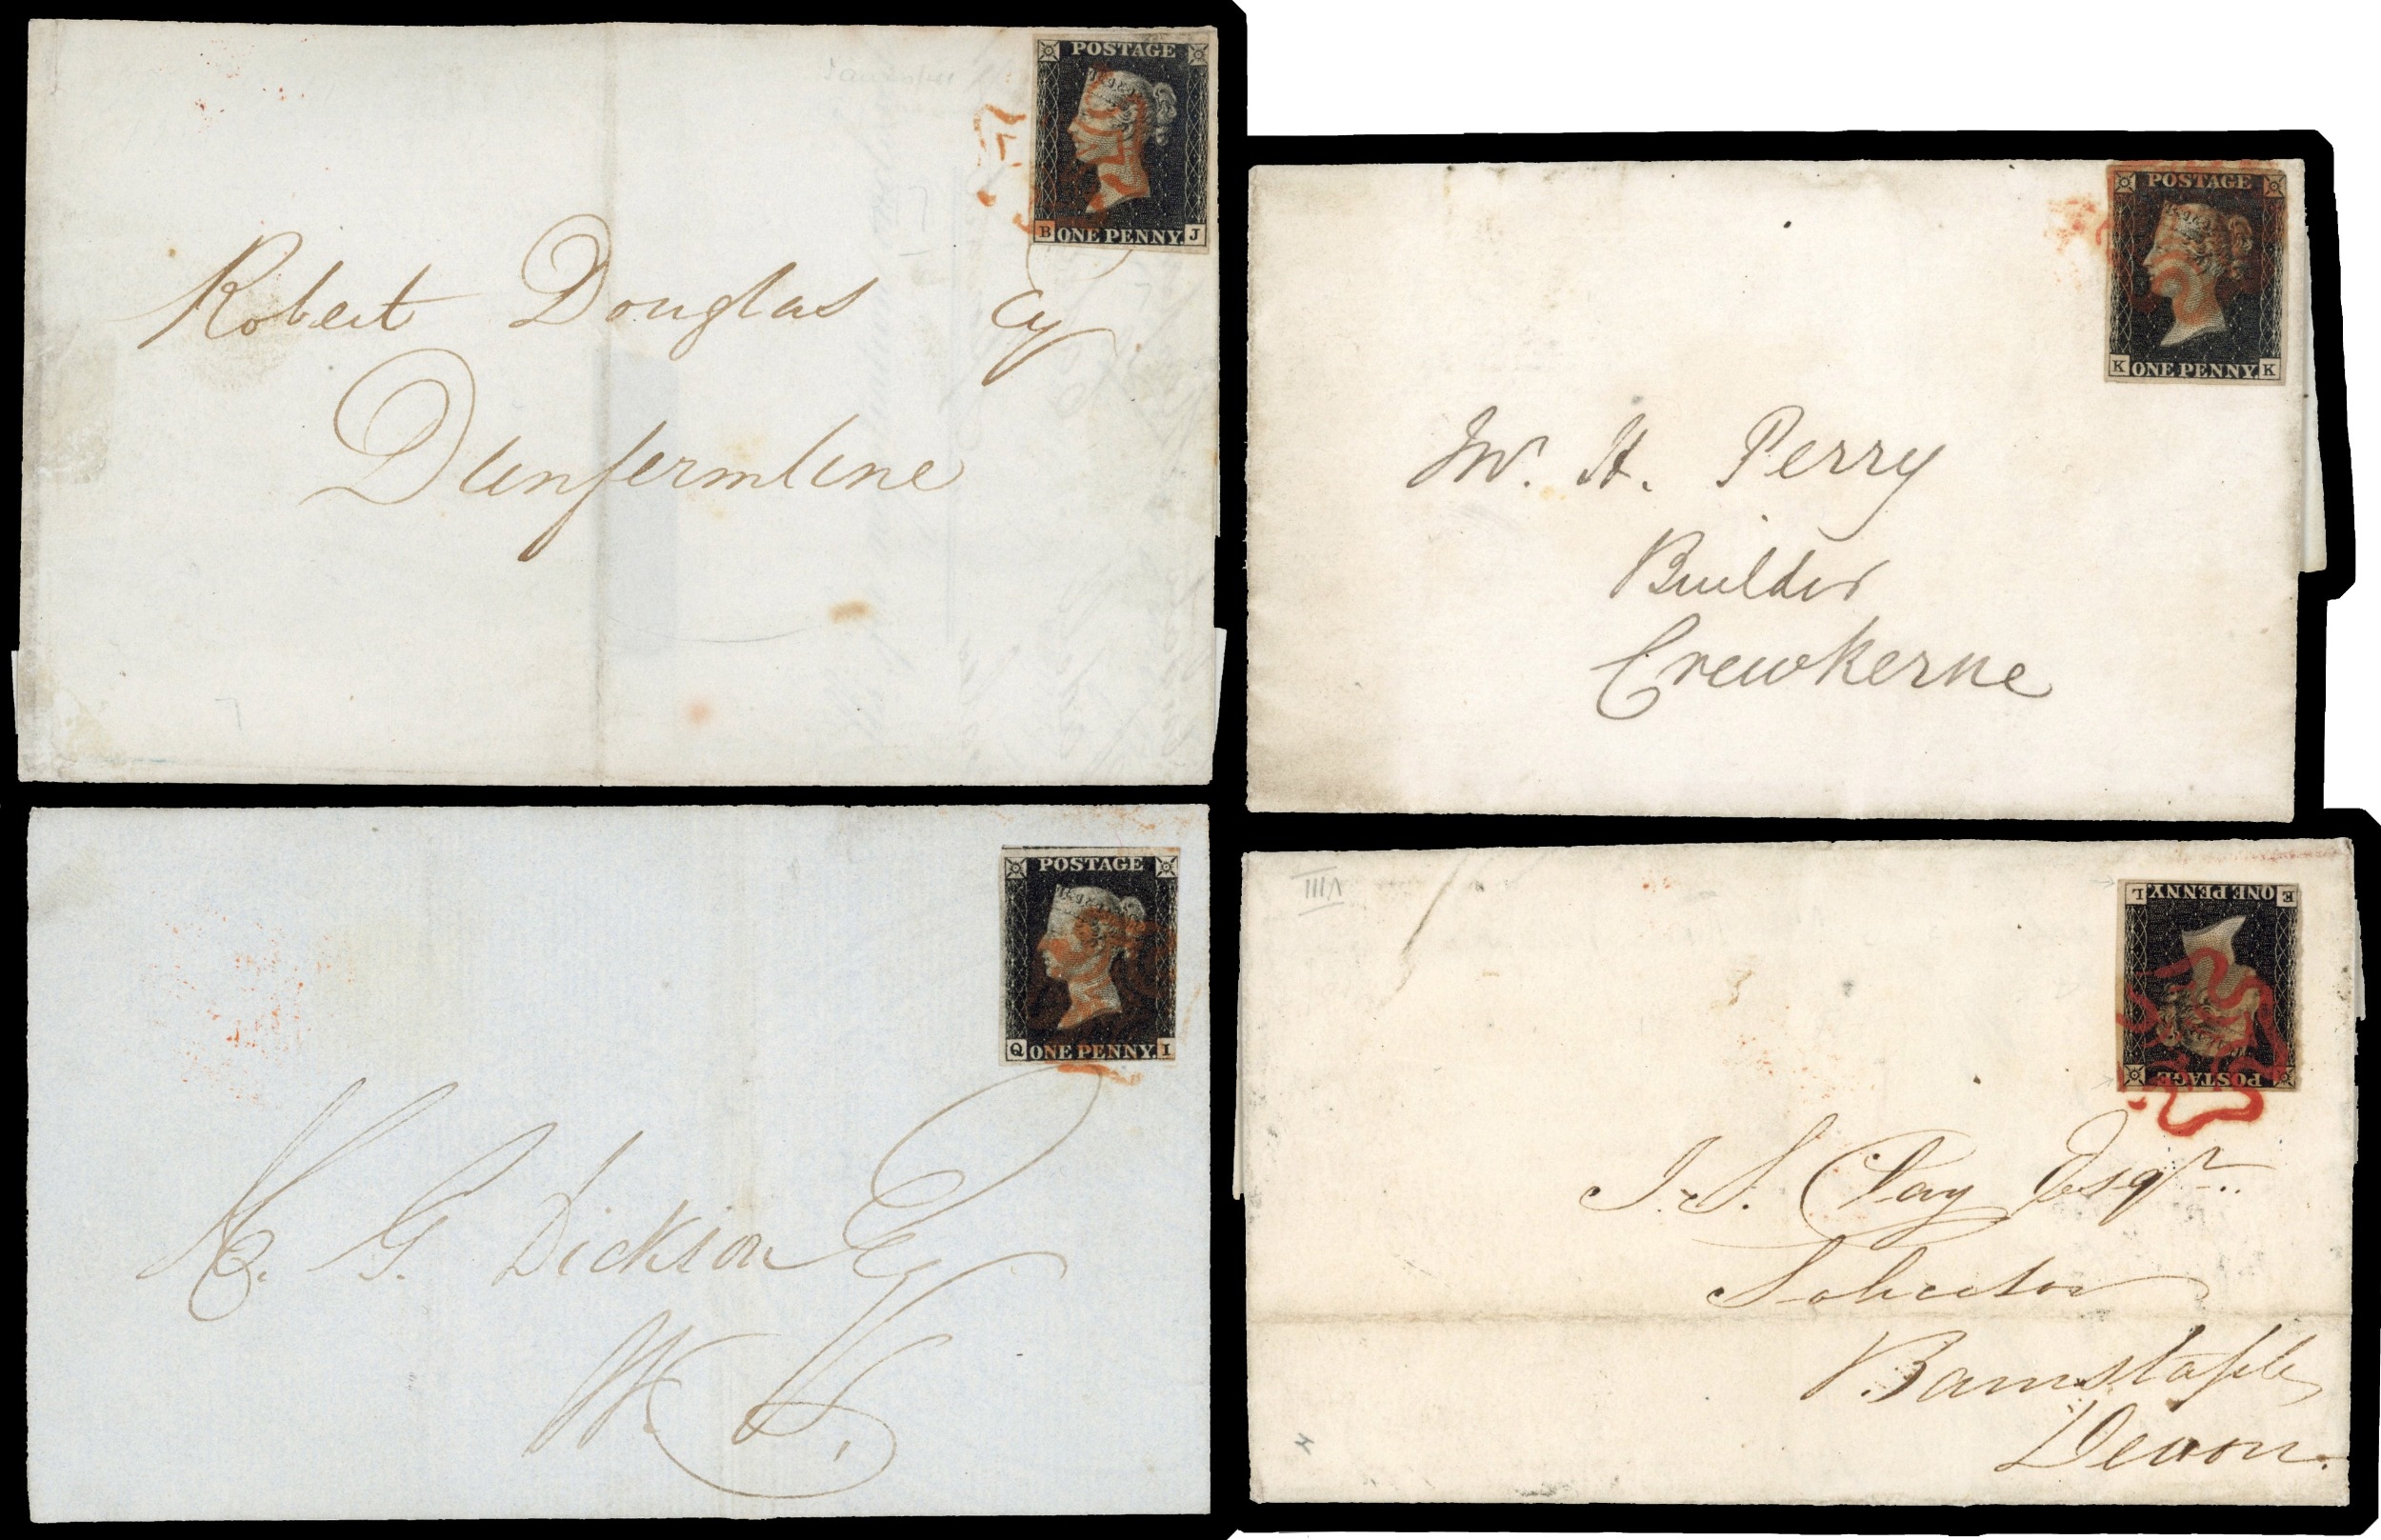 POSTAGE
B ONE PENNY. J
Robert Douglas Esq
Dunfermline
POSTAGE
K ONE PENNY. K
Mr. H. Perry
Builder
Crewkerne
POSTAGE
Q ONE PENNY. I
G. Dickson Esq
W. S.
VIII
E ONE PENNY. L
POSTAGE
J. S. Clay Esqr.
Solicitor
Barnstaple
Devon.